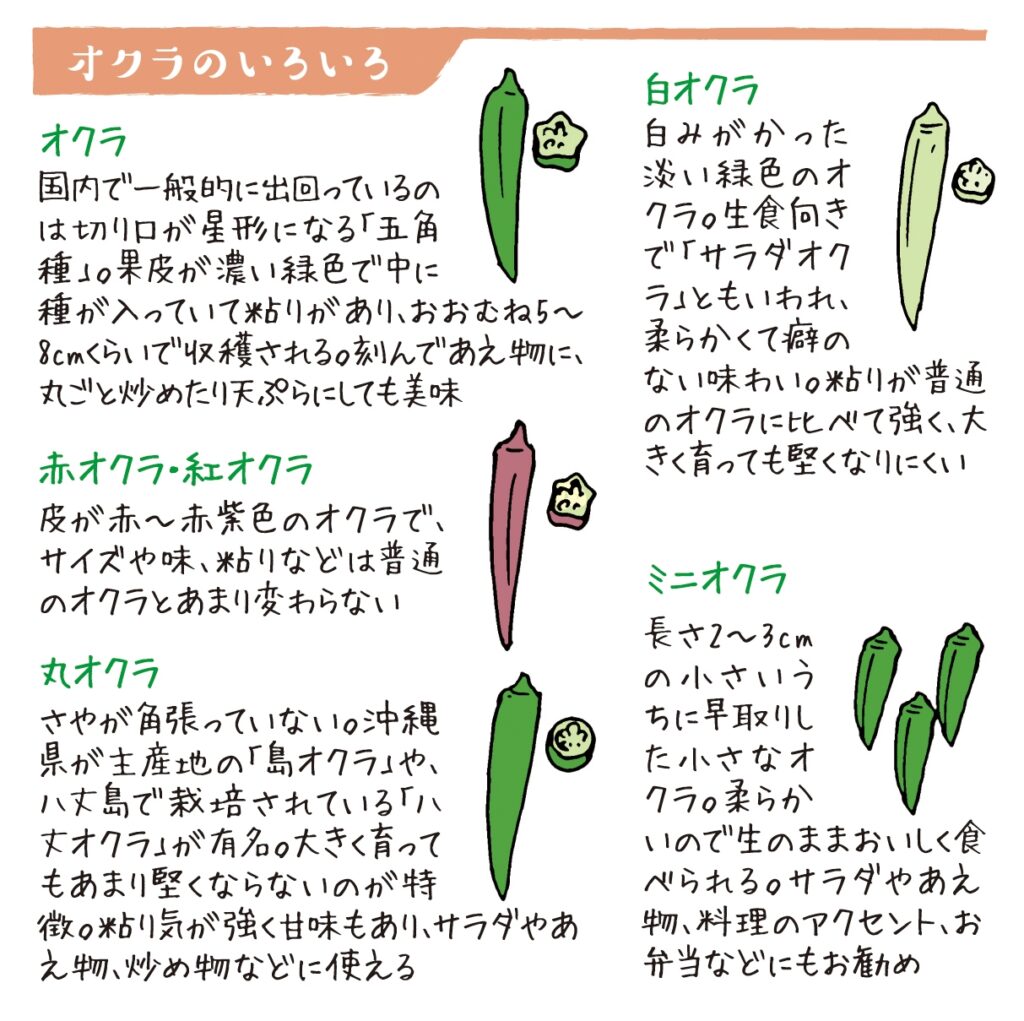 オクラのいろいろ
オクラ
国内で一般的に出回っているの
は切り口が星形になる「五角
種」。果皮が濃い緑色で中に
種が入っていて粘りがあり、おおむね5〜
8cmくらいで収穫される。刻んであえ物に、
丸ごと炒めたり天ぷらにしても美味
赤オクラ・紅オクラ
皮が赤〜赤紫色のオクラで、
サイズや味、粘りなどは普通
のオクラとあまり変わらない
丸オクラ
さやが角張っていない。沖縄
県が主産地の「島オクラ」や、
八丈島で栽培されている「八
丈オクラ」が有名。大きく育って
もあまり堅くならないのが特
徴。粘り気が強く甘味もあり、サラダやあ
え物、炒め物などに使える
白オクラ
白みがかった
淡い緑色のオ
クラ。生食向き
で「サラダオク
ラ」ともいわれ、
柔らかくて癖の
ない味わい。粘りが普通
のオクラに比べて強く、大
きく育っても堅くなりにくい
ミニオクラ
長さ2〜3cm
の小さいう
ちに早取りし
た小さなオ
クラ。柔らか
いので生のままおいしく食
べられる。サラダやあえ
物、料理のアクセント、お
弁当などにもお勧め